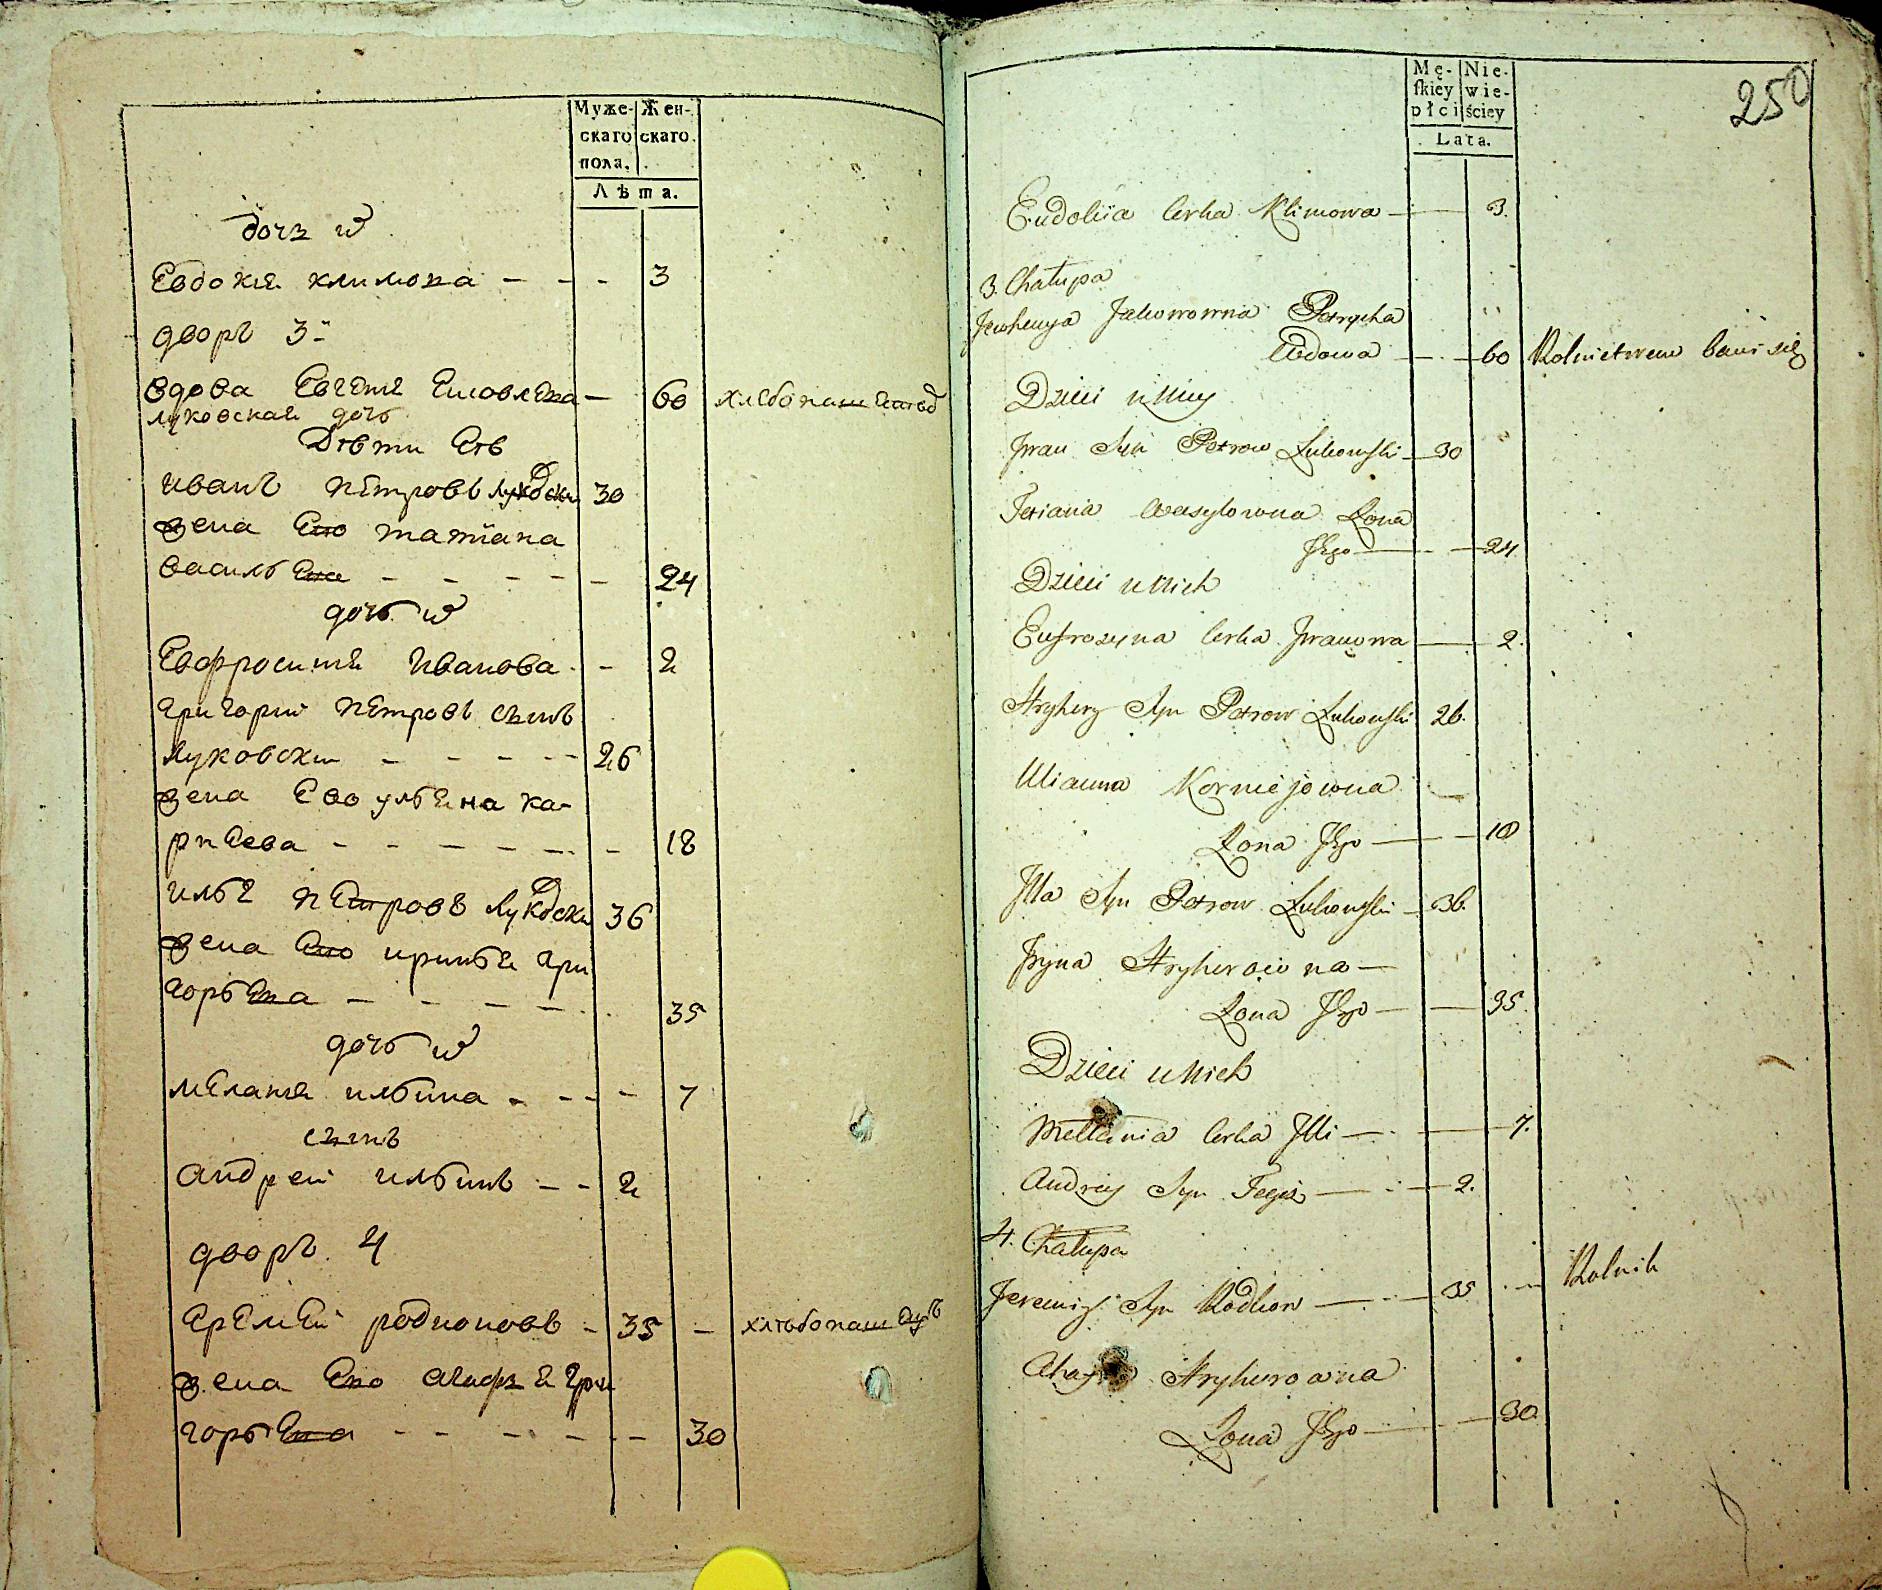 Муже-
скаго
пола.
Жен-
скаго.
Лѣта.
дочь
Евдокия климова - - - 3
дворъ 3-
вдова Евгения - 60
луковская дочь
Дѣти Ев
иванъ петровъ луковски 30
жена Ево татиана
василь - - - - - 24
дочь
Евфросиния иванова - - 2
григории петровъ сынъ
луковски - - - - - 26
жена Ево ульяна ка-
рпеева - - - - - - - 18
илья петровъ луковски 36
жена Ево ириня гри
горьева - - - - 35
дочь
мелания ильина - - - - 7
сынъ
андреи ильинъ - - 2
дворъ 4
еремеи родионовъ - 35 -
жена Ево агафя гри
горьева - - - - - - 30
Mę-
skiey
płci
Nie-
wie-
ściey
Lata.
250
Eudokiia Corka Klimowa — 3.
3. Chałupa
Jewhenya Jakowowna Petrycha
Wdowa — 60 Rolnictwem bawi się
Dzieci u Niey
Jwan Syn Petrow Łukowski — 30
Tetiana Wasylowna Żona
Jego — 24
Dzieci u Nich
Eufrozyna Corka Jwanowa — 2.
Hryhory Syn Petrow Łukowski 26.
Ulianna Korniejowna
Żona Jego — 18
Jlla Syn Petrow Łukowski — 36.
Jryna Hryhorowna —
Żona Jego — 35.
Dzieci u Nich
Mellania Corka Jlli — 7.
Andrey Syn Tegoż — 2.
4. Chałupa
Jeremiy Syn Rodion — 35 — Rolnik
Hryhorowna
Żona Jego — 30.